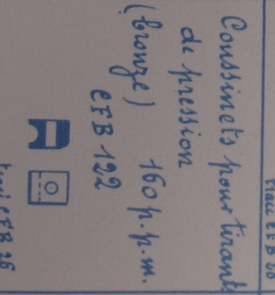 Coussinets pour tirants
de pression
(bronze) 160 p.p.m.
CFB 122